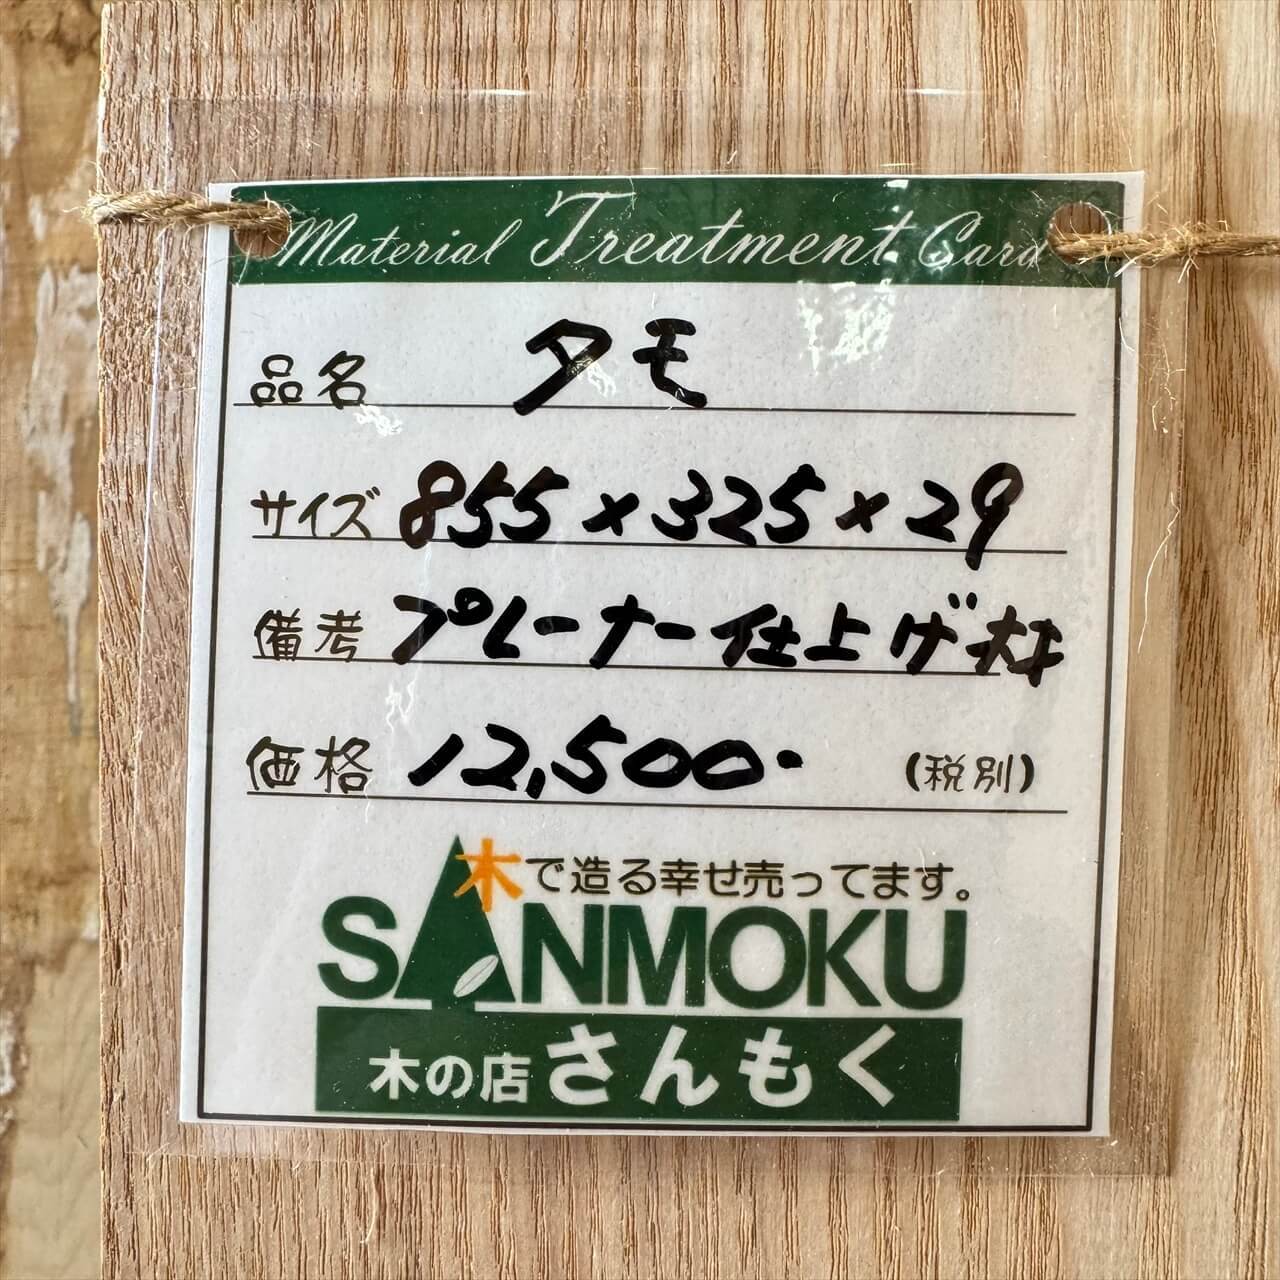 Material Treatment Card
品名 タモ
サイズ 855×325×29
備考 プレーナー仕上げ材
価格 12,500- (税別)
木で造る幸せ売ってます。
SANMOKU
木の店 さんもく